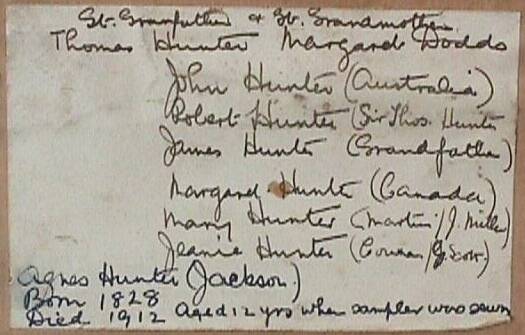 Gt. Granfather & Gt. Grandmother
Thomas Hunter Margaret Dodds
John Hunter (Australia)
Robert Hunter (Sir Thos. Hunter
James Hunter (Grandfather)
Margaret Hunter (Canada)
Mary Hunter (Martin/J. Miller)
Jeanie Hunter (Cowan/
Agnes Hunter (Jackson.)
Born 1828
Died 1912 Aged 12 yrs when sampler was sewn